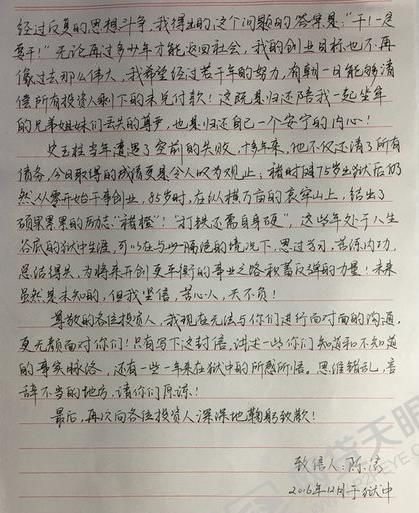 经过反复的思想斗争，我得出的这个问题的答案是：“干！一定
要干！”无论再过多少年才能返回社会，我的创业目标也不再
像过去那么伟大，我希望经过若干年的努力，有朝一日能够清
偿所有投资人剩下的未兑付款！这既是归还陪我一起坐牢
的兄弟姐妹们丢失的尊严，也是归还自己一个安宁的内心！
史玉柱当年遭遇了空前的失败，十多年来，他不仅还清了所有
债务，今日取得的成绩更是令人叹为观止；褚时健75岁出狱后仍
然从零开始干事创业，85岁时，在纵横万亩的哀牢山上，结出了
硕果累累的励志“褚橙”！“打铁还需自身硬”，这些年处于人生
谷底的狱中生涯，可以在与世隔绝的情况下，思过省己，苦练内功，
总结得失，为将来开创更平衡的事业之路积蓄反弹的力量！未来
虽然是未知的，但我坚信，苦心人，天不负！
尊敬的各位投资人，我现在无法与你们进行面对面的沟通，
更无颜面对你们！只有写下这封信，讲述一些你们知道和不知道
的事实脉络，还有一些一年来在狱中的所感所悟。思维错乱，言
辞不当的地方，请你们原谅！
最后，再次向各位投资人深深地鞠躬致歉！
致信人：陈
2016年12月于狱中